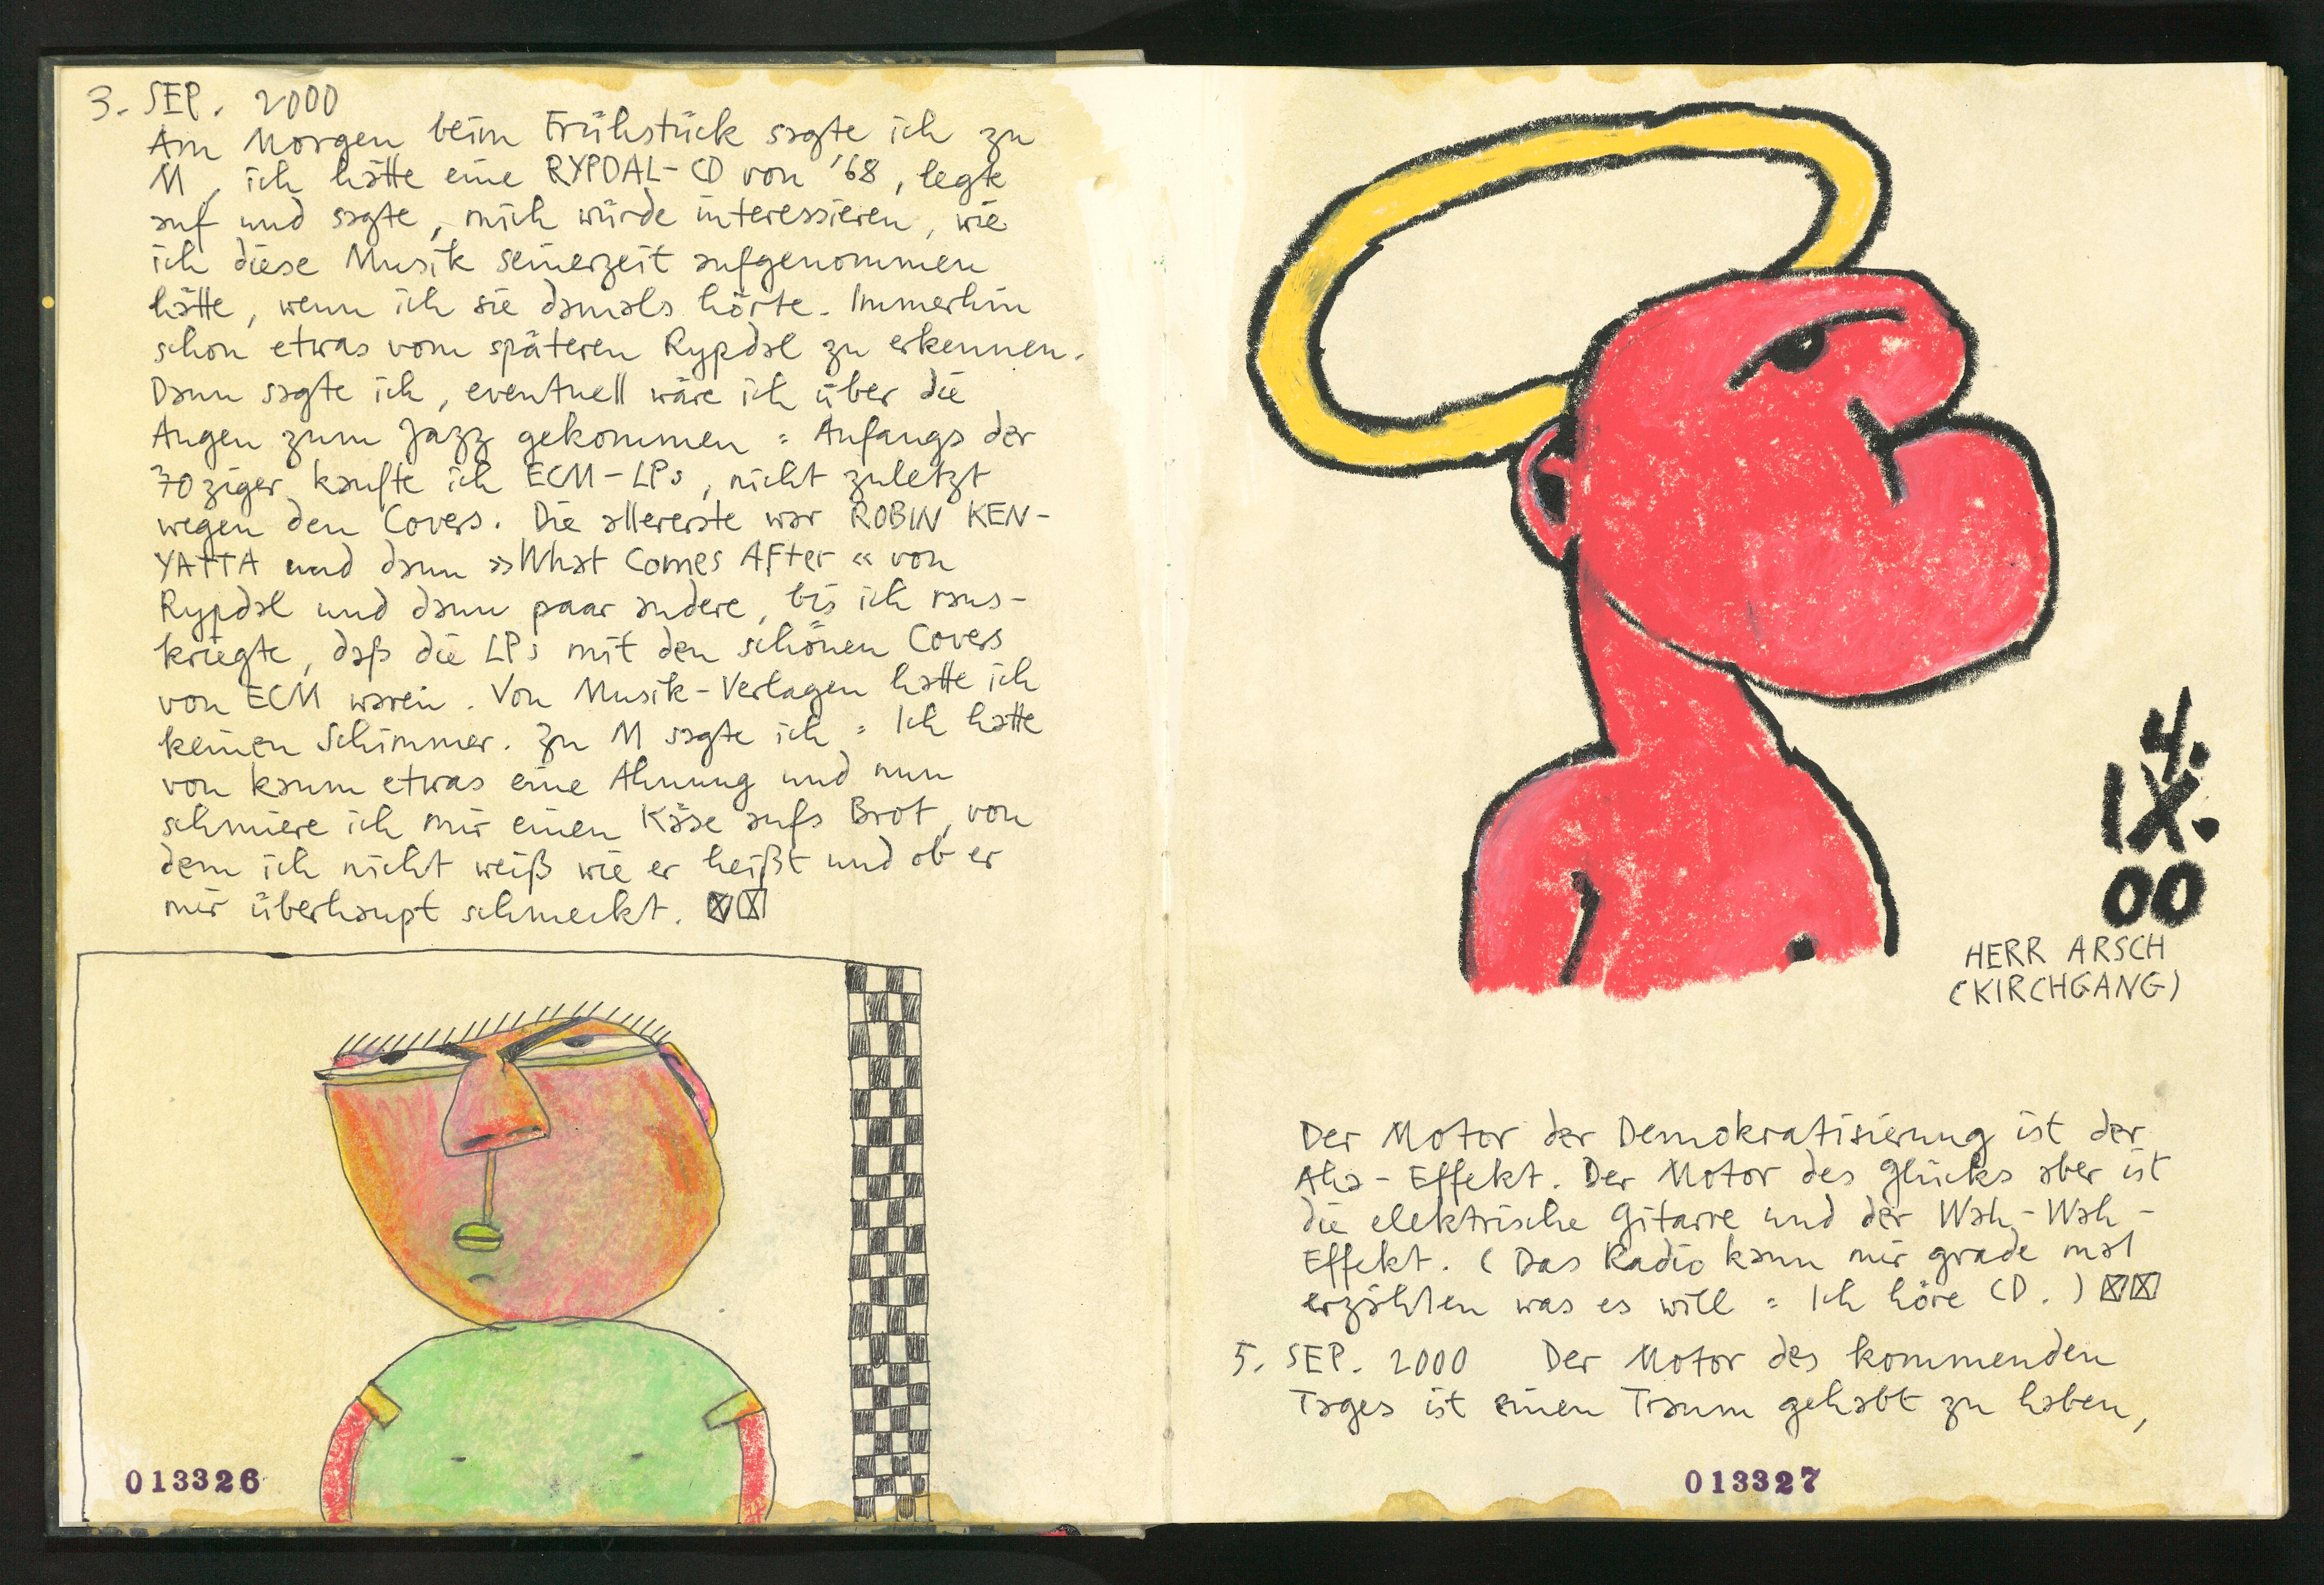 3. SEP. 2000
Am Morgen beim Frühstück sagte ich zu
M, ich hätte eine RYPDAL-CD von '68, legte
auf und sagte, mich würde interessieren, wie
ich diese Musik seinerzeit aufgenommen
hätte, wenn ich sie damals hörte. Immerhin
schon etwas vom späteren Rypdal zu erkennen.
Dann sagte ich, eventuell wäre ich über die
Augen zum Jazz gekommen: Anfangs der
70ziger kaufte ich ECM-LPs, nicht zuletzt
wegen den Covers. Die allererste war ROBIN KEN-
YATTA und dann »What Comes After« von
Rypdal und dann paar andere, bis ich raus-
kriegte, daß die LPs mit den schönen Covers
von ECM waren. Von Musik-Verlagen hatte ich
keinen Schimmer. Zu M sagte ich: Ich hatte
von kaum etwas eine Ahnung und nun
schmiere ich mir einen Käse aufs Brot, von
dem ich nicht weiß wie er heißt und ob er
mir überhaupt schmeckt.
013326
4.
IX.
00
HERR ARSCH
(KIRCHGANG)
Der Motor der Demokratisierung ist der
Aha-Effekt. Der Motor des Glücks aber ist
die elektrische Gitarre und der Wah-Wah-
Effekt. (Das Radio kann mir grade mal
erzählen was es will: Ich höre CD.)
5. SEP. 2000 Der Motor des kommenden
Tages ist einen Traum gehabt zu haben,
013327